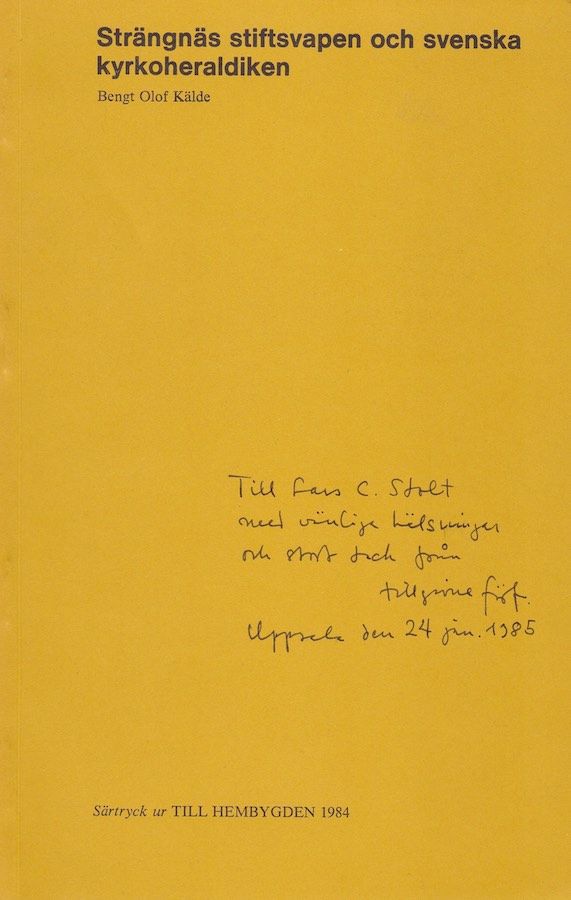 Strängnäs stiftsvapen och svenska
kyrkoheraldiken
Bengt Olof Kälde
Till Lars C. Stolt
med vänliga hälsningar
och stort tack från
tillgivne förf.
Uppsala den 24 jan. 1985
Särtryck ur TILL HEMBYGDEN 1984